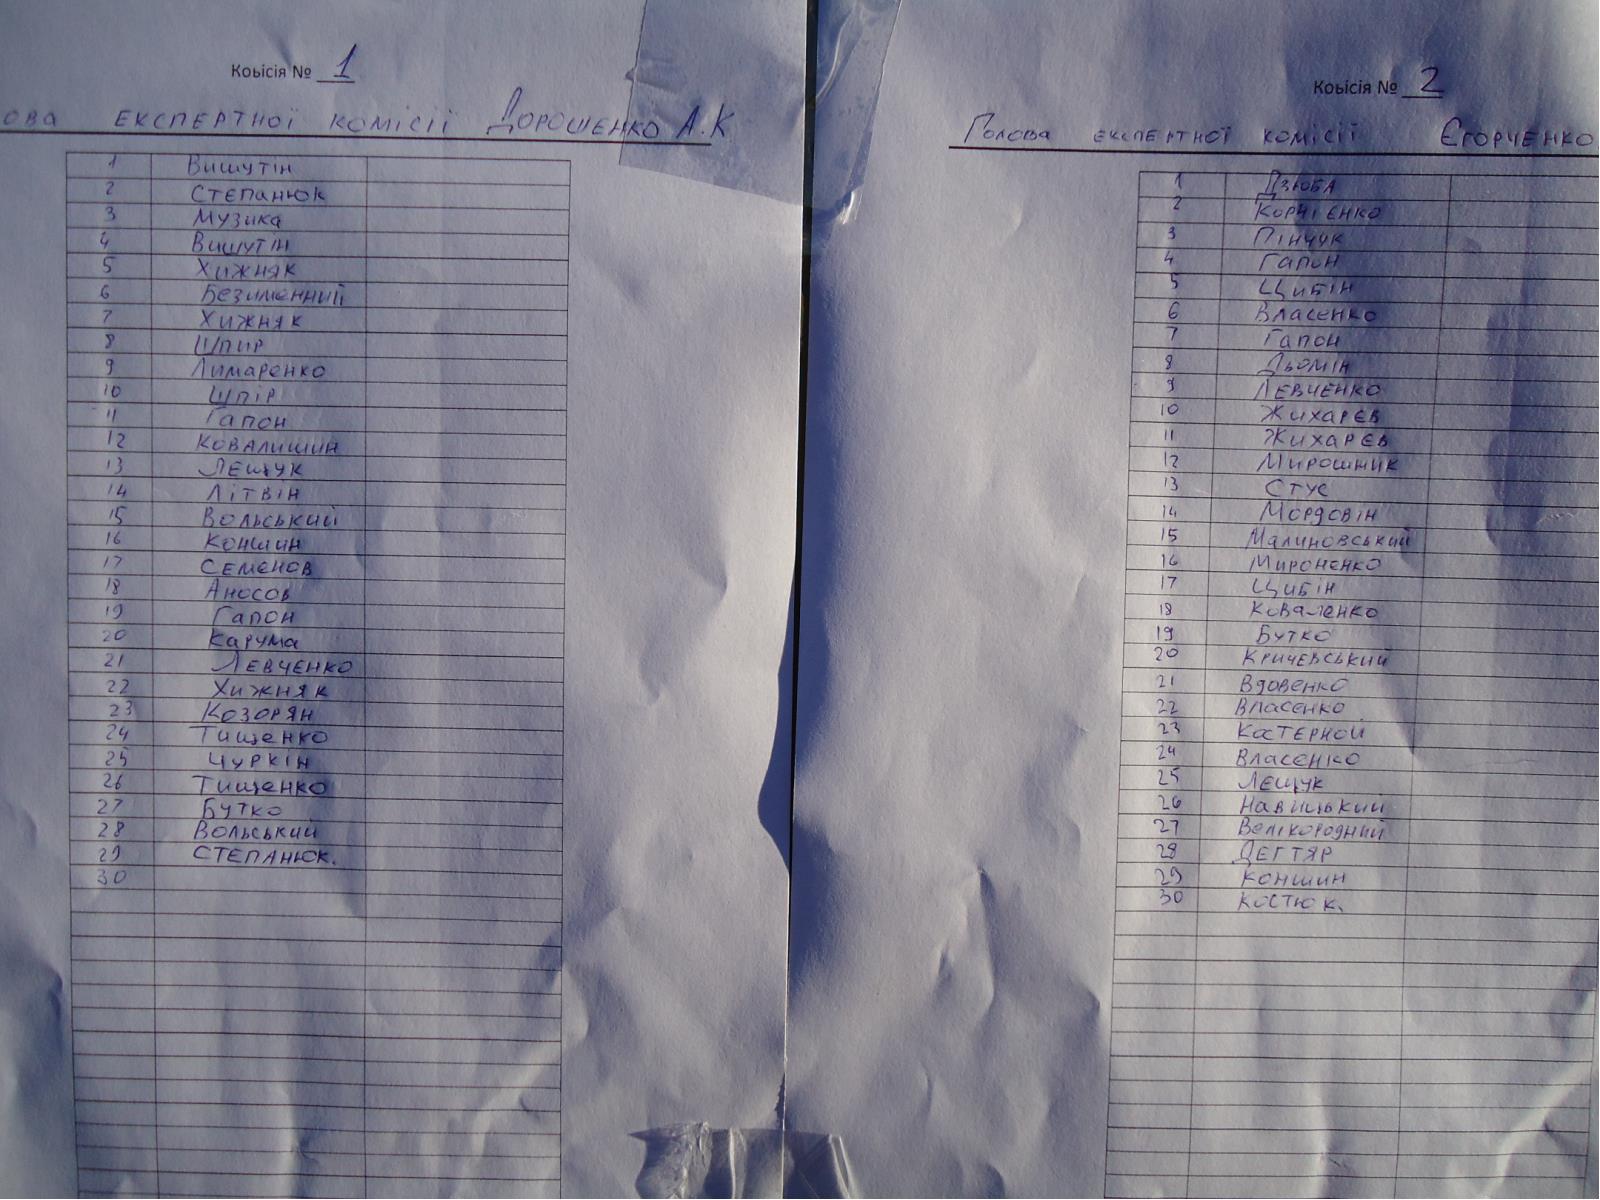 Коьісія № 1
ова експертної комісії Дорошенко А.К
1 Вишутін
2 Степанюк
3 Музика
4 Вишутін
5 Хижняк
6 Безименний
7 Хижняк
8 Шпир
9 Лимаренко
10 Шпір
11 Гапон
12 Ковалишин
13 Лещук
14 Літвін
15 Вольський
16 Коншин
17 Семенов
18 Аносов
19 Гапон
20 Карума
21 Левченко
22 Хижняк
23 Козорян
24 Тищенко
25 Чуркін
26 Тищенко
27 Бутко
28 Вольський
29 Степанюк.
30
Коьісія № 2
Голова експертної комісії Єгорченко
1 Дзюба
2 Корнієнко
3 Пінчук
4 Гапон
5 Цибін
6 Власенко
7 Гапон
8 Дьомін
9 Левченко
10 Жихарєв
11 Жихарєв
12 Мирошник
13 Стус
14 Мордовін
15 Малиновський
16 Мироненко
17 Цибін
18 Коваленко
19 Бутко
20 Кричевський
21 Вдовенко
22 Власенко
23 Костерной
24 Власенко
25 Лещук
26 Навицький
27 Велікородний
28 Дегтяр
29 Коншин
30 Костюк.